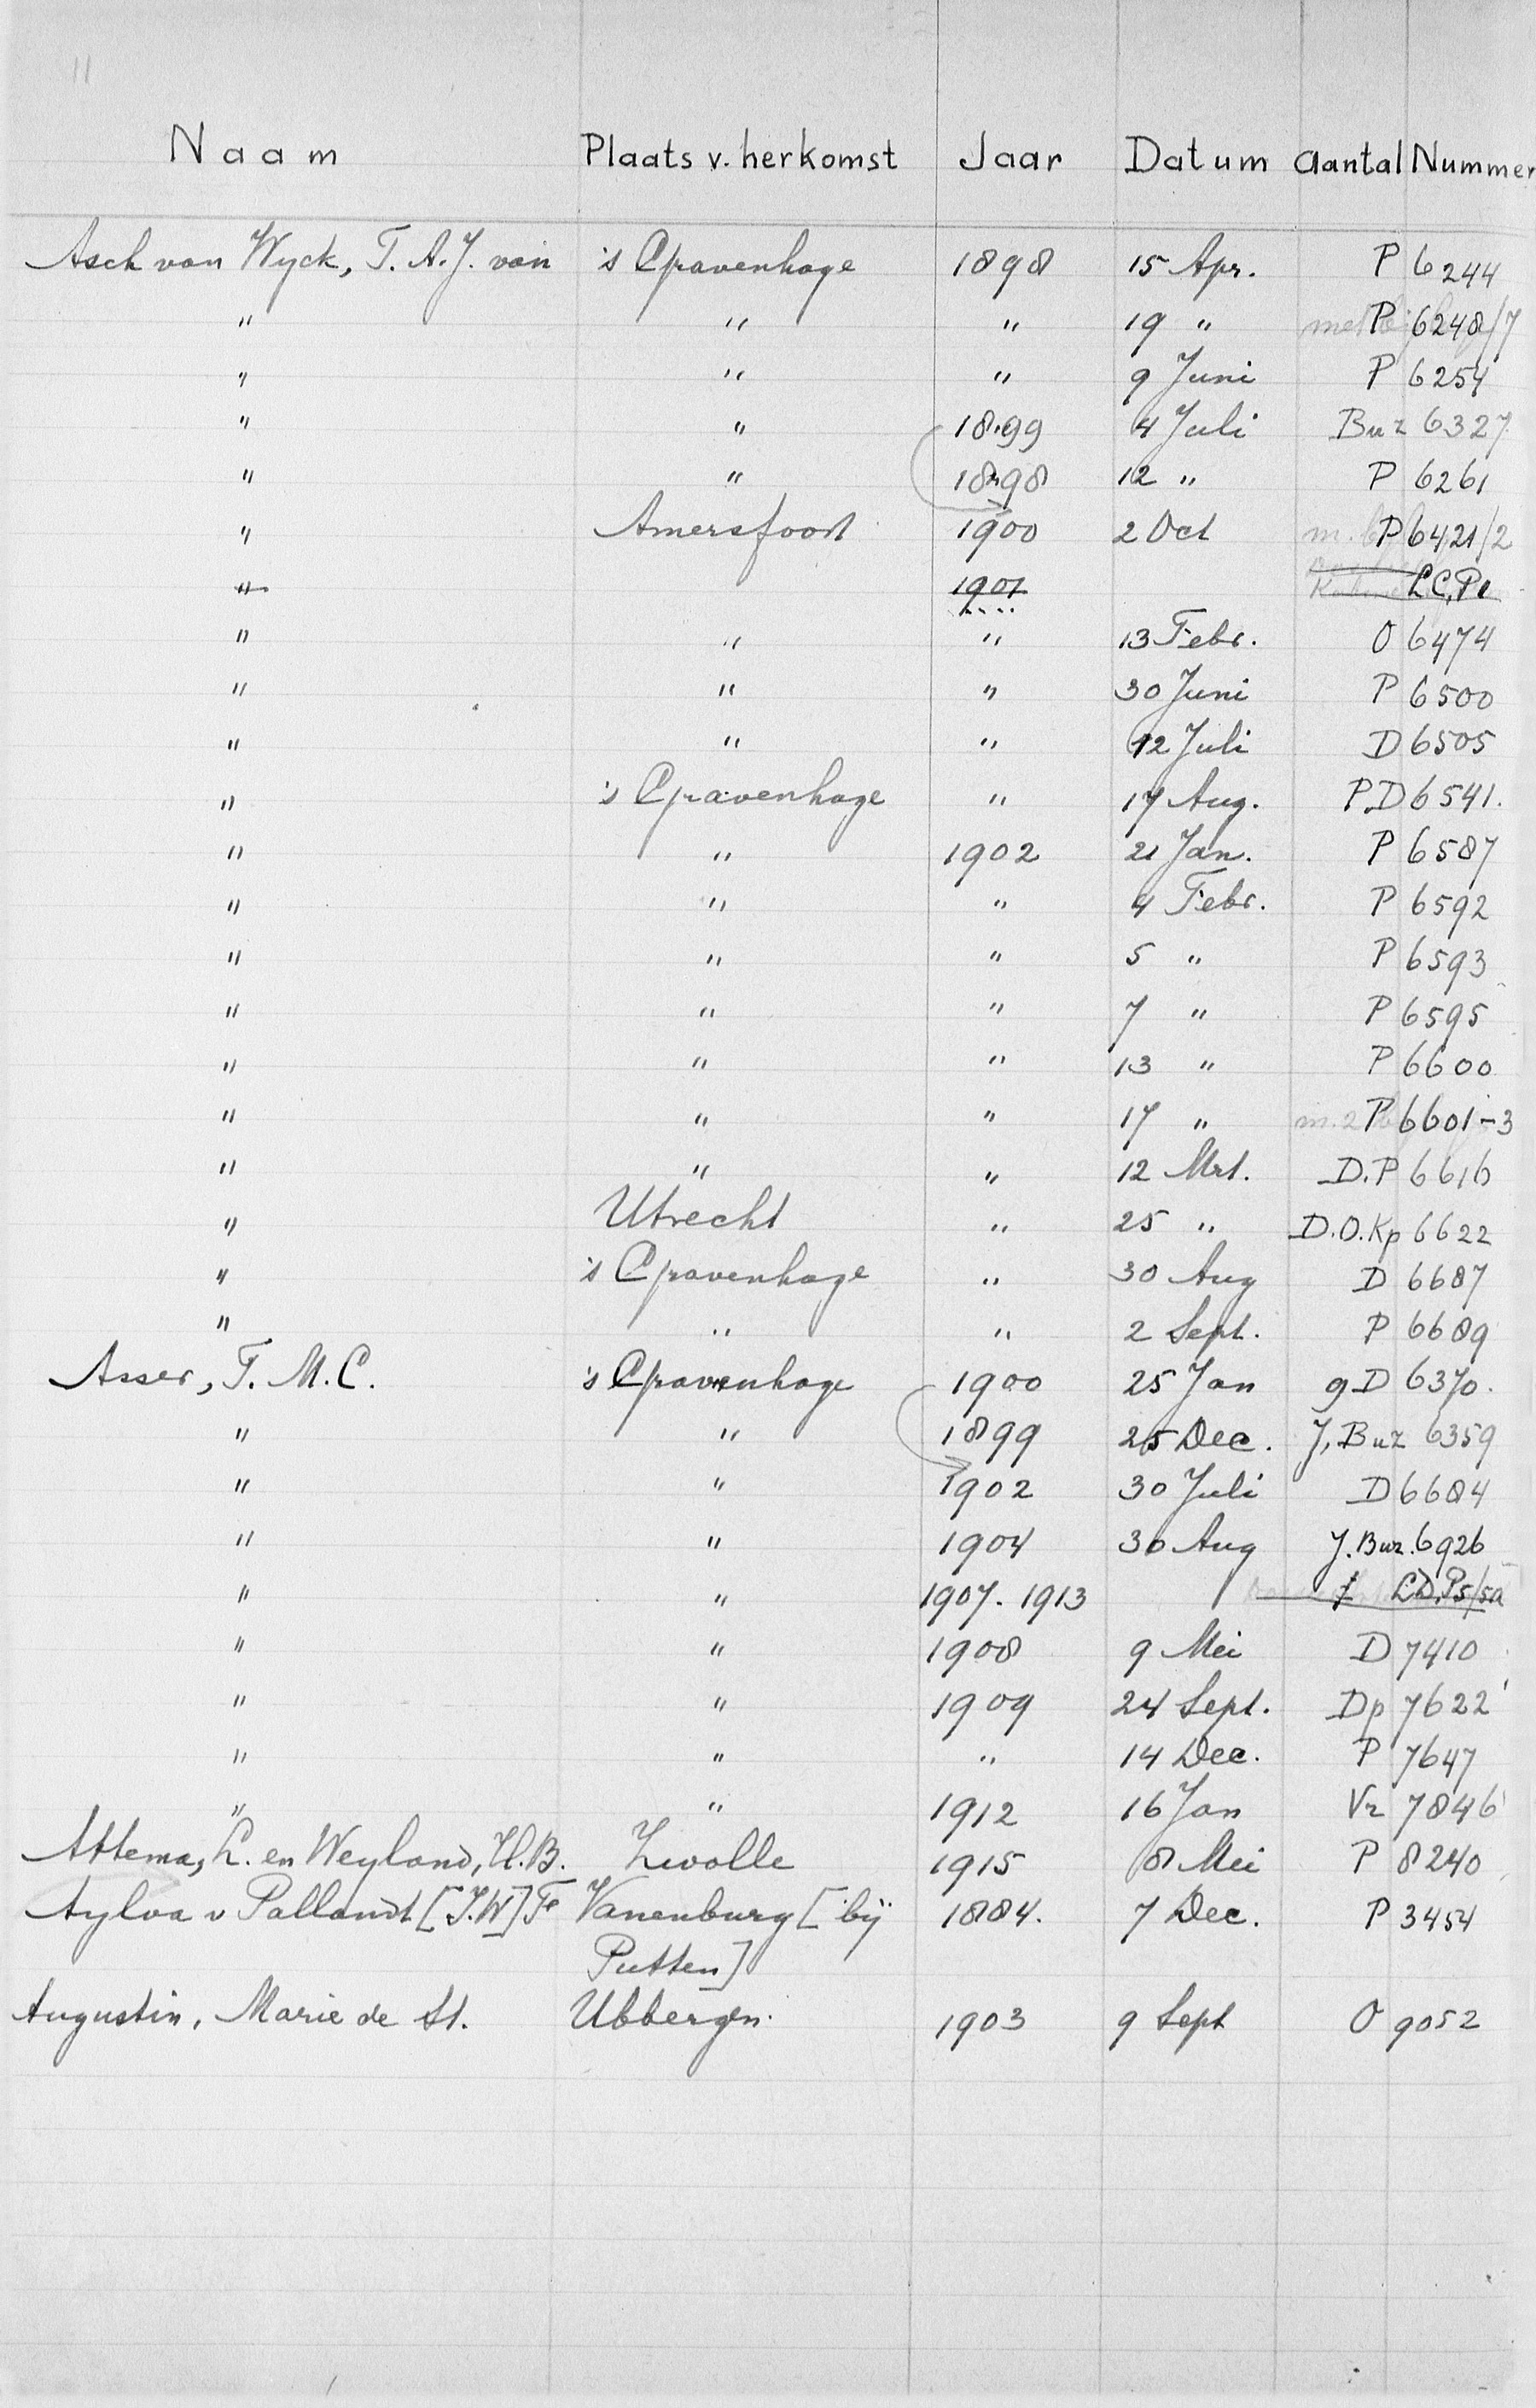 11
Naam Plaats v. herkomst Jaar Datum Aantal Nummer
Asch van Wyck, T. A. J. van 's Gravenhage 1898 15 Apr. P 6244
" " " 19 " P 6248/7
" " " 9 Juni P 6254
" " 1899 4 Juli Buz 6327
" " 1898 12 " P 6261
" Amersfoort 1900 2 Oct P 6421/2
" 1901 LC, P1
" " " 13 Febr. O 6474
" " " 30 Juni P 6500
" " " 12 Juli D 6505
" 's Gravenhage " 17 Aug. P.D 6541.
" " 1902 21 Jan. P 6587
" " " 4 Febr. P 6592
" " " 5 " P 6593
" " " 7 " P 6595
" " " 13 " P 6600
" " " 17 " m. 2 P 6601-3
" " " 12 Mrt. D.P 6616
" Utrecht " 25 " D.O.Kp 6622
" 's Gravenhage " 30 Aug D 6687
" " " 2 Sept. P 6689
Asser, T. M. C. 's Gravenhage 1900 25 Jan g D 6370.
" " 1899 25 Dec. J, Buz 6359
" " 1902 30 Juli D 6684
" " 1904 30 Aug J. Buz. 6926
" " 1907-1913 LD, P5/5a
" " 1908 9 Mei D 7410
" " 1909 24 Sept. Dp 7622
" " " 14 Dec. P 7647
" " 1912 16 Jan Vz 7846
Attema, L. en Weyland, H. B. Zwolle 1915 8 Mei P 8240
Aylva v Pallandt [J.W] Fe Vanenburg [bij 1884. 7 Dec. P 3454
Putten]
Augustin, Marie de St. Ubbergen. 1903 9 Sept O 9052